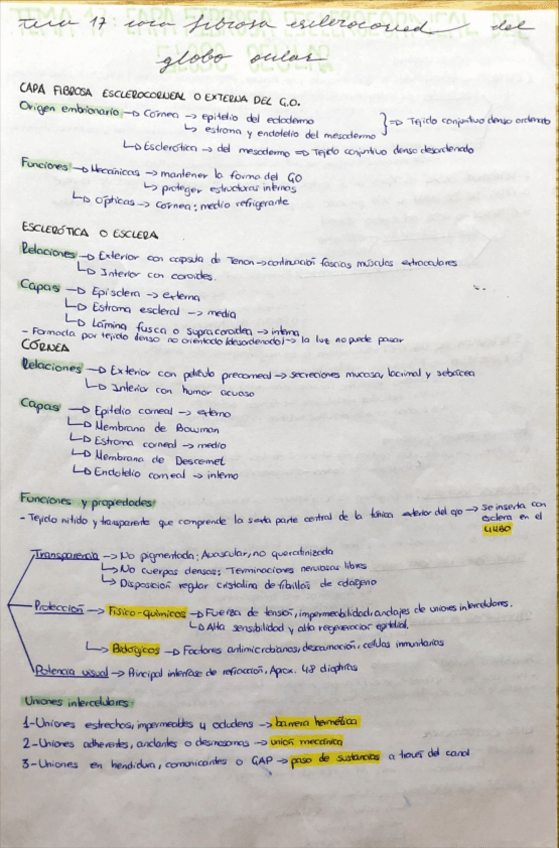 Tema 17 capa fibrosa esclerocorneal del
globo ocular
CAPA FIBROSA ESCLEROCORNEAL O EXTERNA DEL G.O.
Origen embrionario → Córnea → epitelio del ectodermo
↳ estroma y endotelio del mesodermo } ⇒ Tejido conjuntivo denso ordenado
↳ Esclerótica → del mesodermo ⇒ Tejido conjuntivo denso desordenado
Funciones → Mecánicas → mantener la forma del GO
↳ proteger estructuras internas
↳ Ópticas → Córnea: medio refrigerante
ESCLERÓTICA O ESCLERA
Relaciones → Exterior con capsula de Tenon → continuación fascias músculos extraoculares
↳ Interior con coroides.
Capas → Episclera → externa
↳ Estroma escleral → media
↳ Lámina fusca o supracoroidea → interna
- Formada por tejido denso no orientado (desordenado) → la luz no puede pasar
CÓRNEA
Relaciones → Exterior con película precorneal → secreciones mucosa, lacrimal y sebácea
↳ Interior con humor acuoso
Capas → Epitelio corneal → externo
↳ Membrana de Bowman
↳ Estroma corneal → medio
↳ Membrana de Descemet
↳ Endotelio corneal → interno
Funciones y propiedades:
- Tejido nítido y transparente que comprende la sexta parte central de la túnica exterior del ojo → se inserta con
esclera en el
LIMBO
Transparencia → No pigmentada; Avascular, no queratinizada
↳ No cuerpos densos; Terminaciones nerviosas libres
↳ Disposición regular cristalina de fibrillas de colágeno
Protección → Físico-químicos → Fuerza de tensión, impermeabilidad, anclajes de uniones intercelulares.
↳ Alta sensibilidad y alta regeneración epitelial.
↳ Biológicos → Factores antimicrobianos, descamación, células inmunitarias
Potencia visual → Principal interfase de refracción, Aprox. 48 dioptrías
Uniones intercelulares:
1- Uniones estrechas, impermeables y ocludens → barrera hermética
2- Uniones adherentes, anclantes o desmosomas → unión mecánica
3- Uniones en hendidura, comunicantes o GAP → paso de sustancias a través del canal